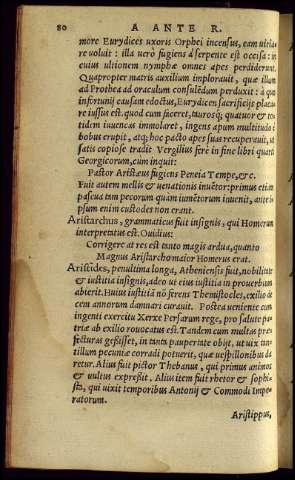 80 A ANTE R.
more Eurydices uxoris Orphei incensus, eam ultra
re uoluit : illa uerò fugiens à serpente est occisa: in
cuius ultionem nymphæ omnes apes perdiderunt.
Quapropter matris auxilium implorauit, quæ illum
ad Prothea ad oraculum consulēdum perduxit : à quo
infortunij causam edoctus, Eurydicen sacrificijs placa
re iussus est. quod cum faceret, taurosq; quatuor & to
tidem iuuencas immolaret, ingens apum multitudo è
bobus erupit, atq; hoc pacto apes suas recuperauit, ut
satis copiose tradit Vergilius ferè in fine libri quarti
Georgicorum, cum inquit:
Pastor Aristæus fugiens Peneia Tempe, &c.
Fuit autem mellis & uenationis inuētor: primus etiam
pascua tam pecorum quam iumētorum inuenit, ante
ipsum enim custodes non erant.
Aristarchus, grammaticus fuit insignis, qui Homerum
interpretatus est. Ouidius:
Corrigere at res est tanto magis ardua, quanto
Magnus Aristarcho maior Homerus erat.
Aristides, penultima longa, Atheniensis fuit, nobilitate
& iustitia insignis, adeo ut eius iustitia in prouerbium
abierit. Huius iustitiā nō ferens Themistocles, exilio de
cem annorum damnari curauit. Postea ueniente cum
ingenti exercitu Xerxe Persarum rege, pro salute pa
tria ab exilio reuocatus est. Tandem cum multas præ
fecturas gessisset, in tanta paupertate obijt, ut uix tan
tillum pecuniæ corradi potuerit, quæ uespillonibus da
retur. Alius fuit pictor Thebanus, qui primus animos
& uultus expreßit. Alius item fuit rhetor & sophi-
sta, qui uixit temporibus Antonij & Commodi Impe
ratorum.
Aristippus,